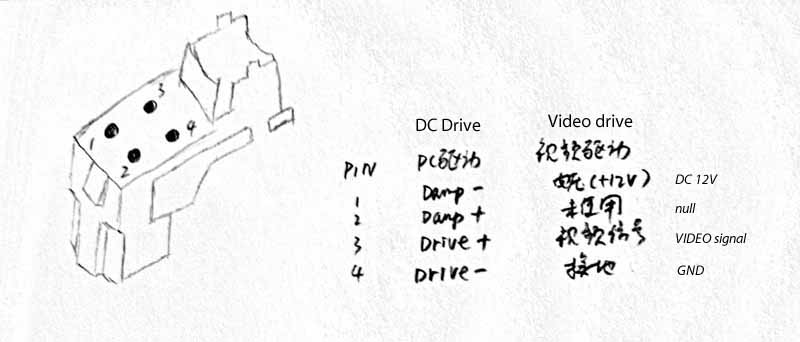 3
1
4
2
DC Drive Video drive
PIN DC驱动 视频驱动
1 Damp- 电源(+12V) DC 12V
2 Damp+ 未使用 null
3 Drive+ 视频信号 VIDEO signal
4 Drive- 接地 GND